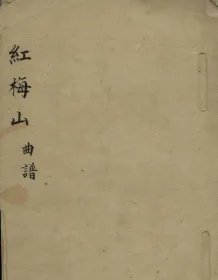 紅梅山曲譜